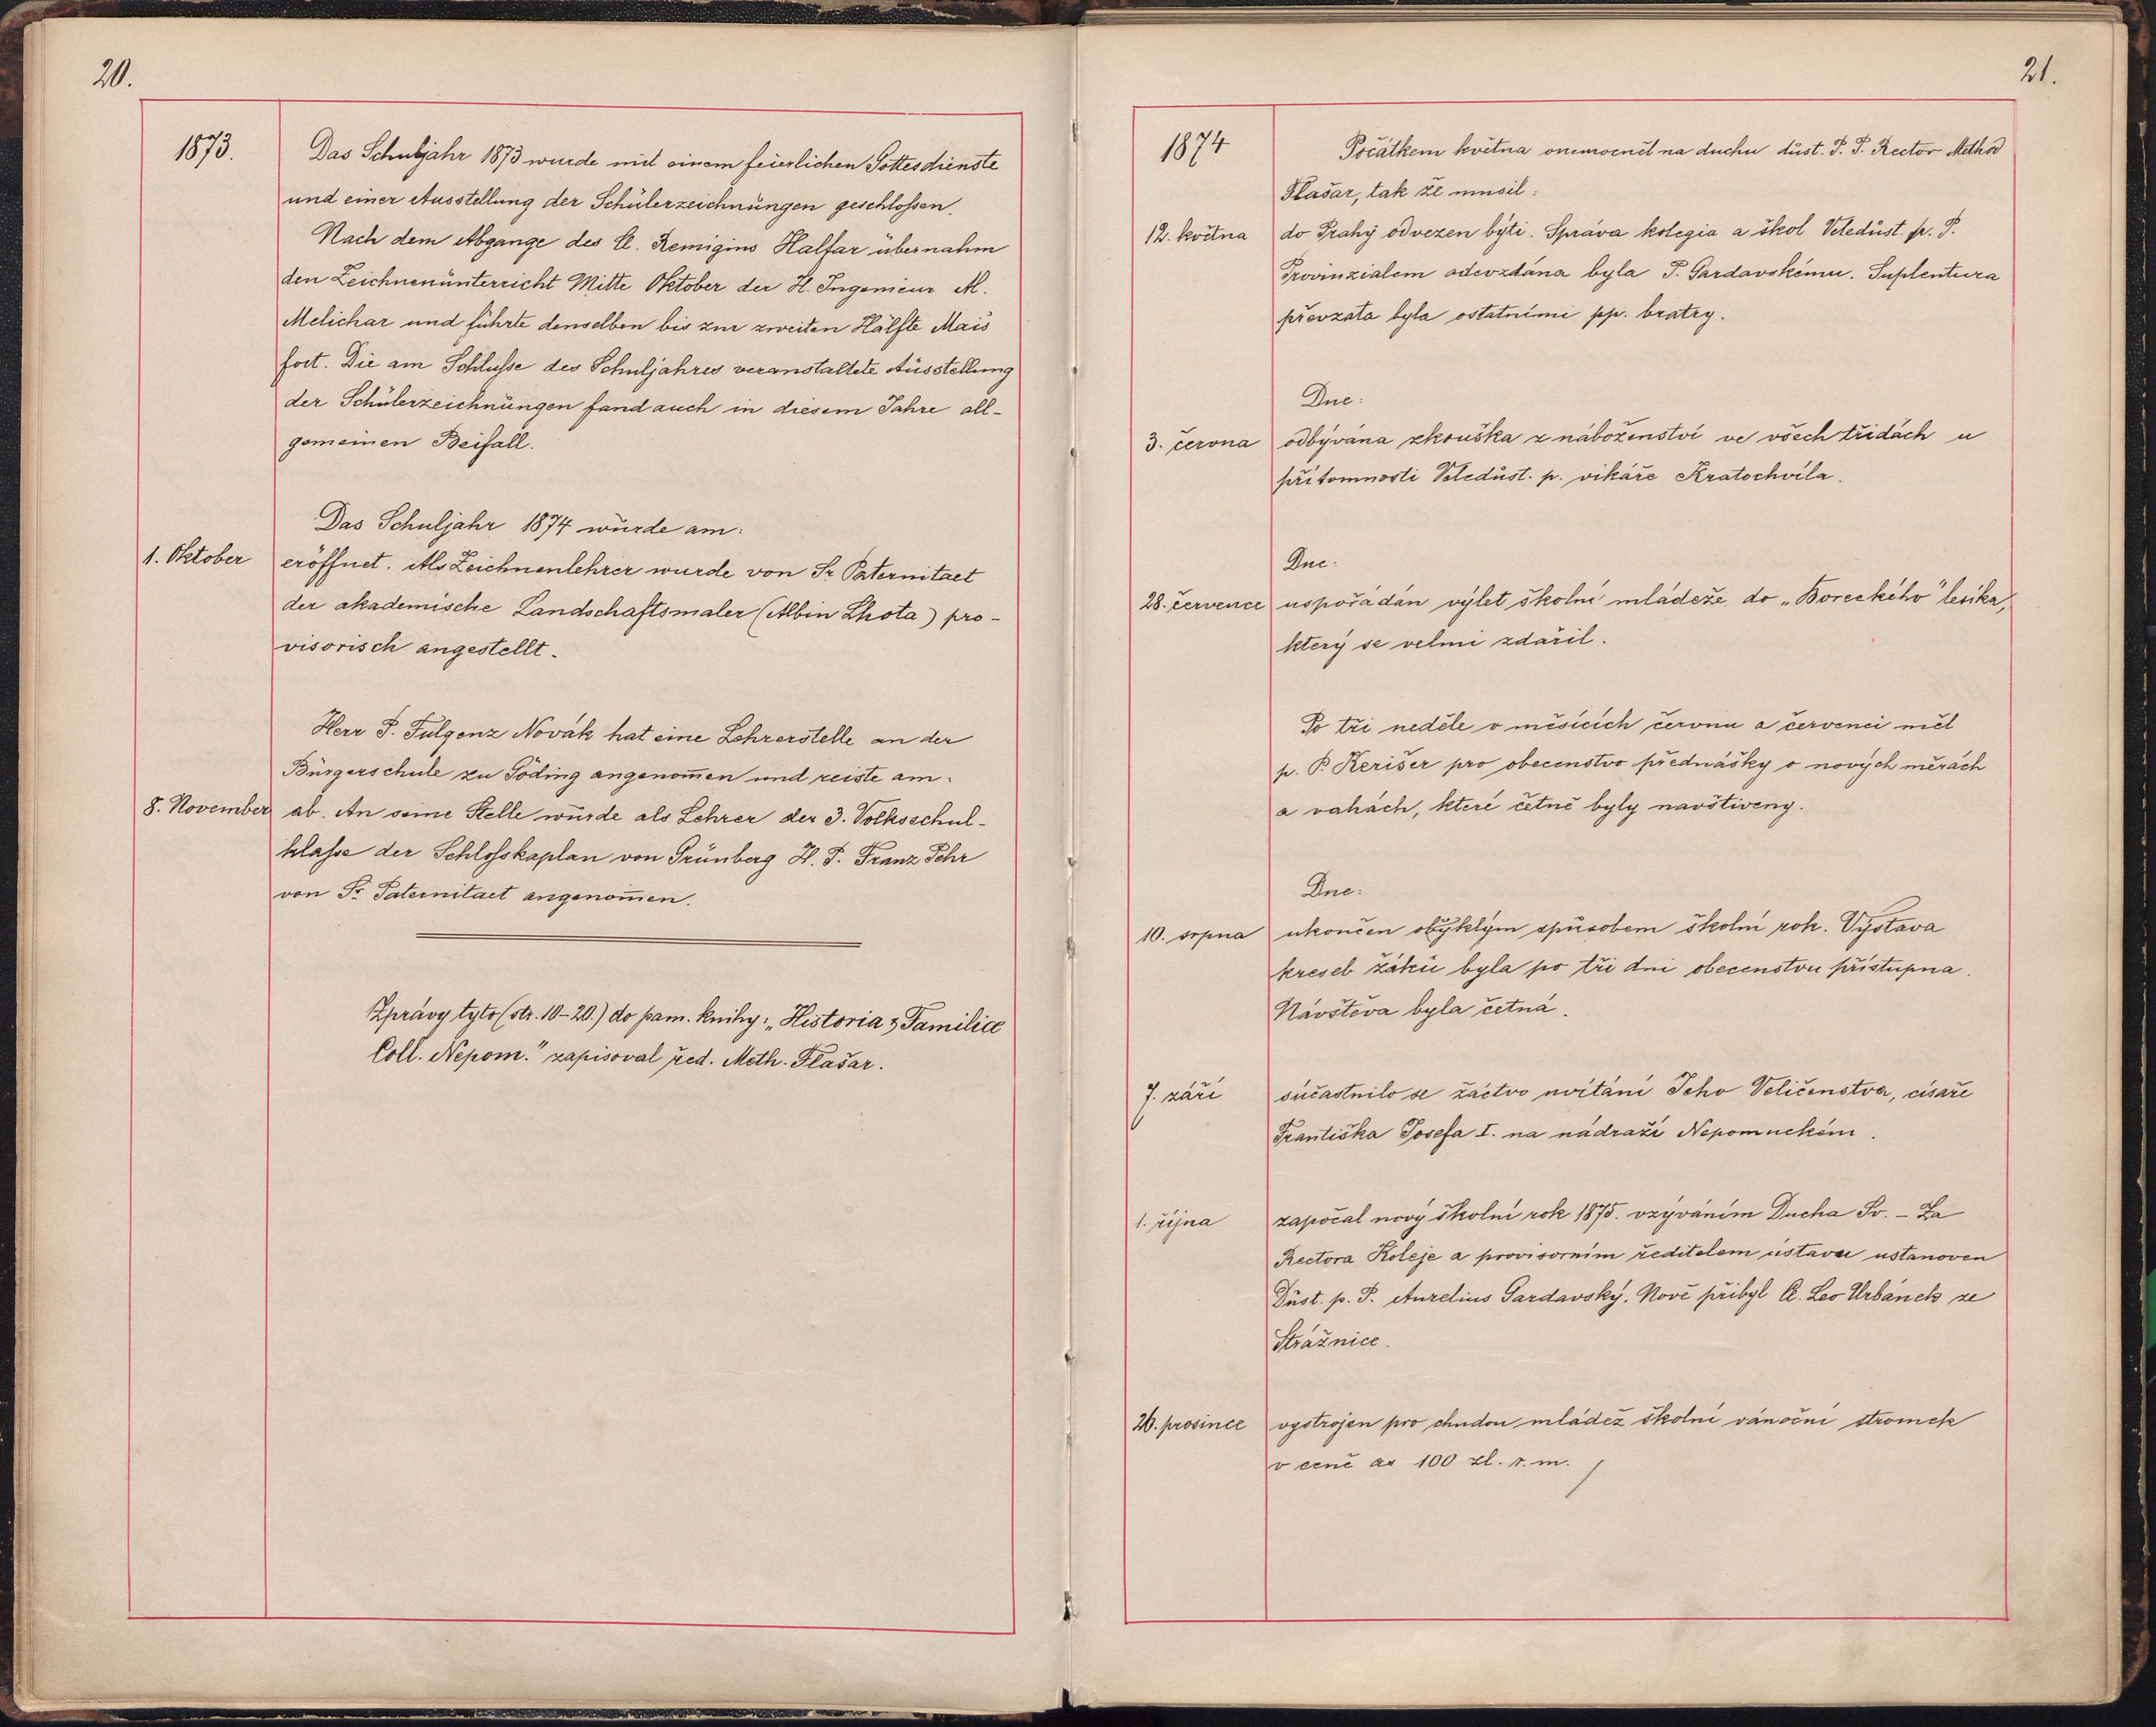 20.
1873.
Das Schuljahr 1873 wurde mit einem feierlichen Gottesdienste
und einer Ausstellung der Schülerzeichnungen geschlossen.
Nach dem Abgange des Cl. Remigius Halfar übernahm
den Zeichnenunterricht Mitte Oktober der H. Ingenieur Al.
Melichar und führte denselben bis zur zweiten Hälfte Mais
fort. Die am Schlusse des Schuljahres veranstaltete Ausstellung
der Schülerzeichnungen fand auch in diesem Jahre all-
gemeinen Beifall.
Das Schuljahr 1874 wurde am:
1. Oktober eröffnet. Als Zeichnenlehrer wurde von Sr Paternitaet
der akademische Landschaftsmaler (Albin Lhota) pro-
visorisch angestellt.
Herr P. Fulgenz Novák hat eine Lehrerstelle an der
Bürgerschule zu Göding angenom̅en und reiste am:
8. November ab. An seine Stelle wurde als Lehrer der 3. Volksschul-
klasse der Schlosskaplan von Grünberg H. P. Franz Pehr
von Sr. Paternitaet angenom̅en.
Zprávy tyto (str. 10-20.) do pam. knihy: „Historia & Familiae
Coll. Nepom." zapisoval řed. Meth. Flašar.
21.
1874
Počátkem května onemocněl na duchu důst. P. P. Rector Method
Flašar, tak že musil:
12. května do Prahy odvezen býti. Správa kolegia a škol Veledůst. p. P.
Provinzialem odevzdána byla P. Gardavskému. Suplentura
převzata byla ostatními pp. bratry.
Dne:
3. června odbývána zkouška z náboženství ve všech třídách u
přítomnosti Veledůst. p. vikáře Kratochvíla.
Dne:
28. července uspořádán výlet školní mládeže do „Boreckého" lesíka,
který se velmi zdařil.
Po tři neděle v měsících červnu a červenci měl
p. P. Keršer pro obecenstvo přednášky o nových měrách
a vahách, které četně byly navštíveny.
Dne:
10. srpna ukončen obyklým spůsobem školní rok. Výstava
kreseb žáků byla po tři dni obecenstvu přístupna.
Návštěva byla četná.
7. září súčastnilo se žáctvo uvítání Jeho Veličenstva, císaře
Františka Josefa I. na nádraží Nepomuckém.
1. října započal nový školní rok 1875. vzýváním Ducha Sv. - Za
Rectora Koleje a provisorním ředitelem ústavu ustanoven
Důst. p. P. Aurelius Gardavský. Nově přibyl Cl. Leo Urbánek ze
Strážnice.
20. prosince vystrojen pro chudou mládež školní vánoční stromek
v ceně as 100 zl. r. m.